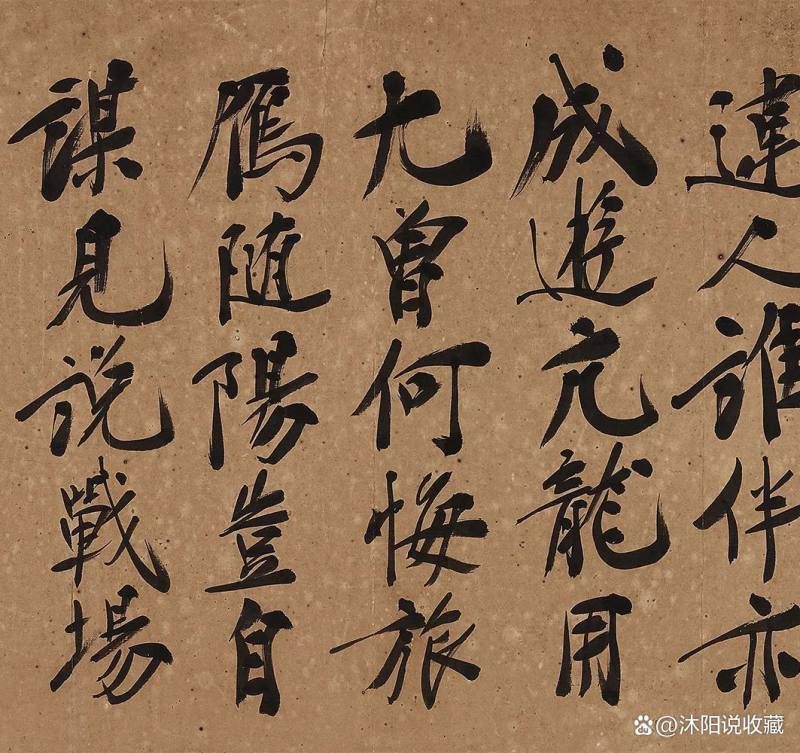 達人誰伴亦
成遊亢龍用
九曾何悔旅
鴈随陽豈自
謀見説戰場
@沐阳说收藏